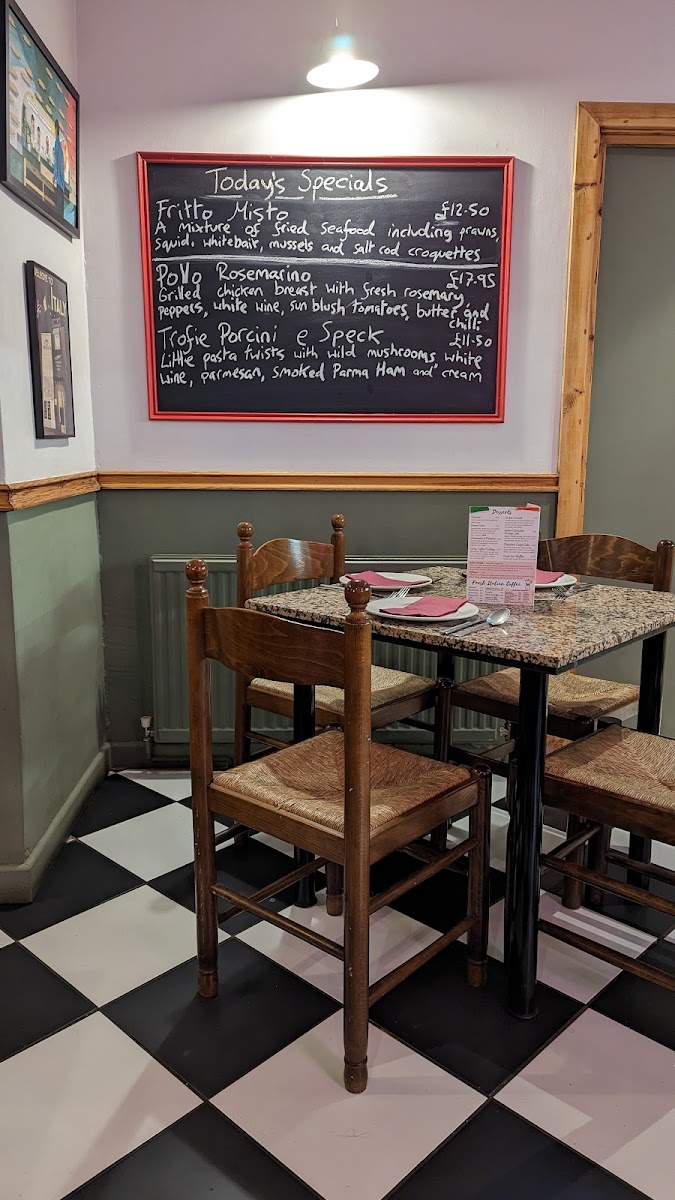 Today's Specials
Fritto Misto £12.50
A mixture of fried seafood including prawns,
squid, whitebait, mussels and salt cod croquettes
Pollo Rosemarino £17.95
Grilled chicken breast with fresh rosemary,
peppers, white wine, sun blush tomatoes, butter, and
chili
Trofie Porcini e Speck £11.50
Little pasta twists with wild mushrooms white
wine, parmesan, smoked Parma Ham and cream
ITALY
Desserts
Fresh Italian Coffee